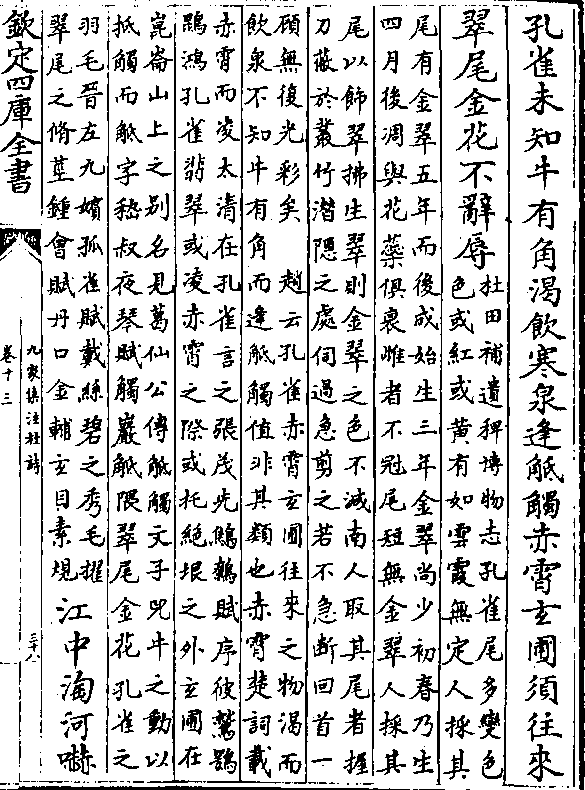 孔雀未知牛有角渴飲寒泉逢觝觸赤霄玄圃須往來
翠尾金花不辭辱
杜田補遺稗博物志孔雀尾多變色
色或紅或黄有如雲霞無定人採其
尾有金翠五年而後成始生三年金翠尚少初春乃生
四月後凋與花蘂俱衰雌者不冠尾短無金翠人採其
尾以飾翠拂生翠則金翠之色不減南人取其尾者握
刀蔽於叢竹潛隱之處伺過急剪之若不急断回首一
顧無復光彩矣 趙云孔雀赤霄玄圃往來之物渴而
飲泉不知牛有角而逢觝觸值非其類也赤霄楚詞載
赤霄而凌太清在孔雀言之張茂先鷦鷯賦序彼鷲鶚
鵾鴻孔雀翡翠或凌赤霄之際或托絶垠之外玄圃在
崑崙山上之别名見葛仙公傳觝觸文子兕牛之動以
抵觸而觝字嵇叔夜琴賦觸巖觝隈翠尾金花孔雀之
羽毛晉左九嬪孤雀賦戴緑碧之秀毛擢
翠尾之脩莖鍾會賦丹口金輔玄目素規
江中淘河嚇
欽定四庫全書
九家集注杜詩
卷十三
三十八